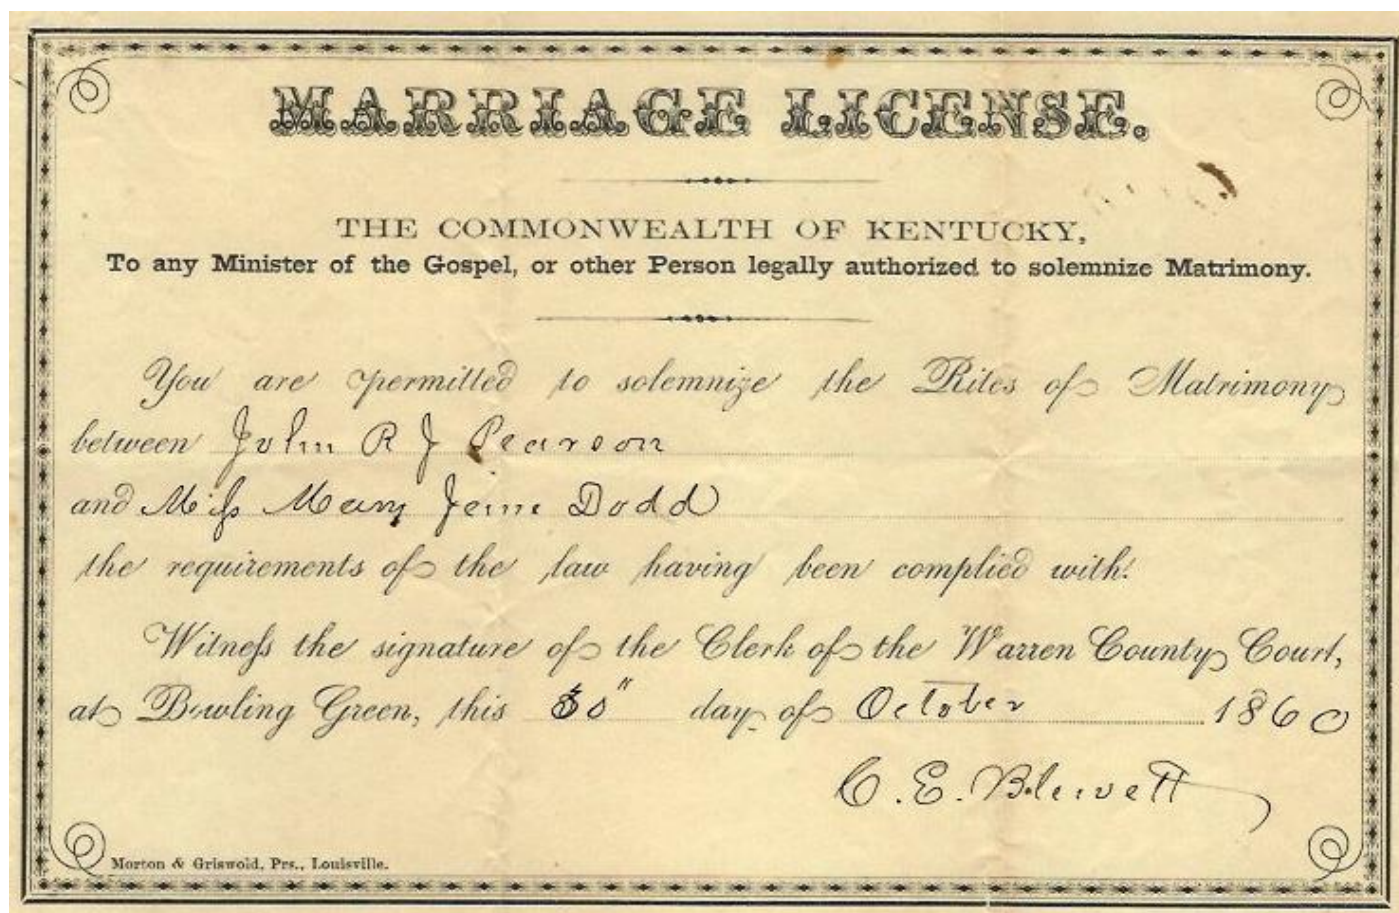 MARRIAGE LICENSE.
THE COMMONWEALTH OF KENTUCKY,
To any Minister of the Gospel, or other Person legally authorized to solemnize Matrimony.
You are permitted to solemnize the Rites of Matrimony
between John R J Pearson
and Miſs Mary Jane Dodd
the requirements of the law having been complied with.
Witneſs the signature of the Clerk of the Warren County Court,
at Bowling Green, this 30" day of October 1860
C. E. Blewett
Morton & Griswold, Prs., Louisville.